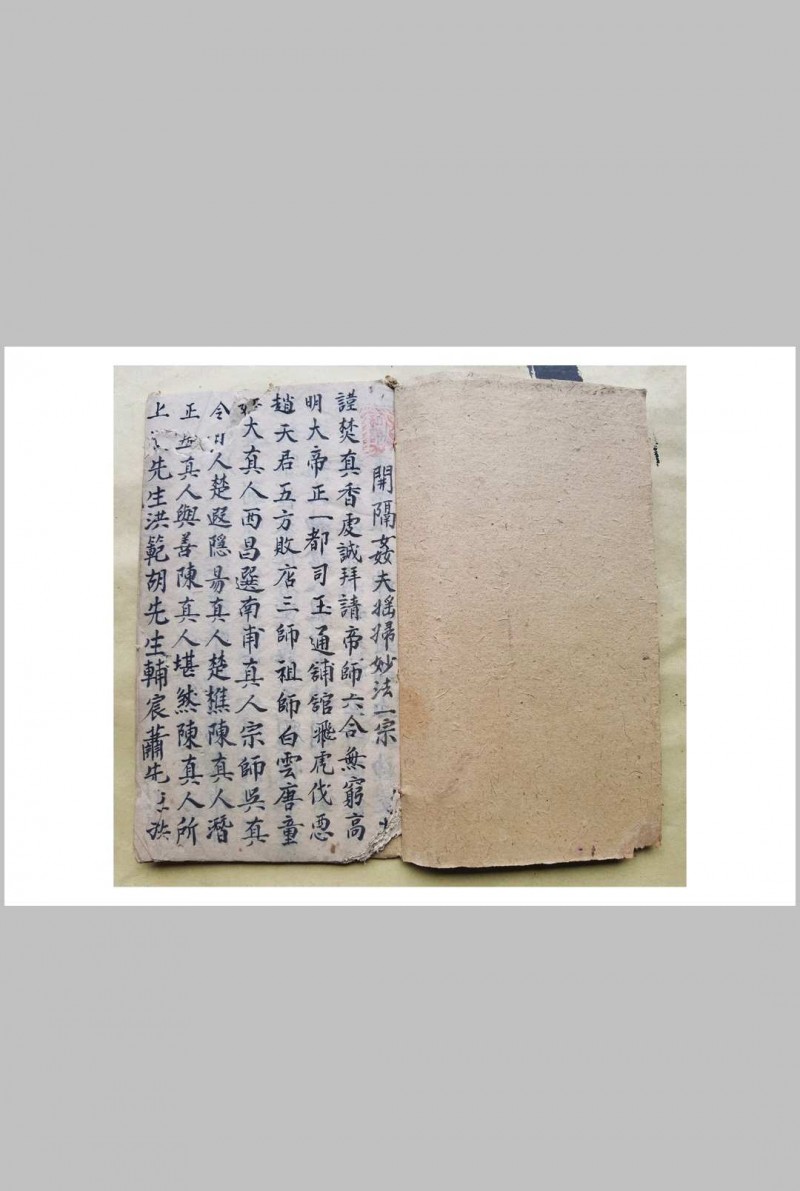 開隔姦夫摇掃妙法一宗
謹焚真香虔誠拜請帝師六合無窮高
明大帝正一都司玉通舖舘飛虎伐惡
趙天君五方敗店三師祖師白雲唐童
大真人西昌選南甫真人宗師吳真
人楚遐隱昜真人楚樵陳真人潛
正真人與善陳真人堪然陳真人所
上先生洪範胡先生輔宸蕭先